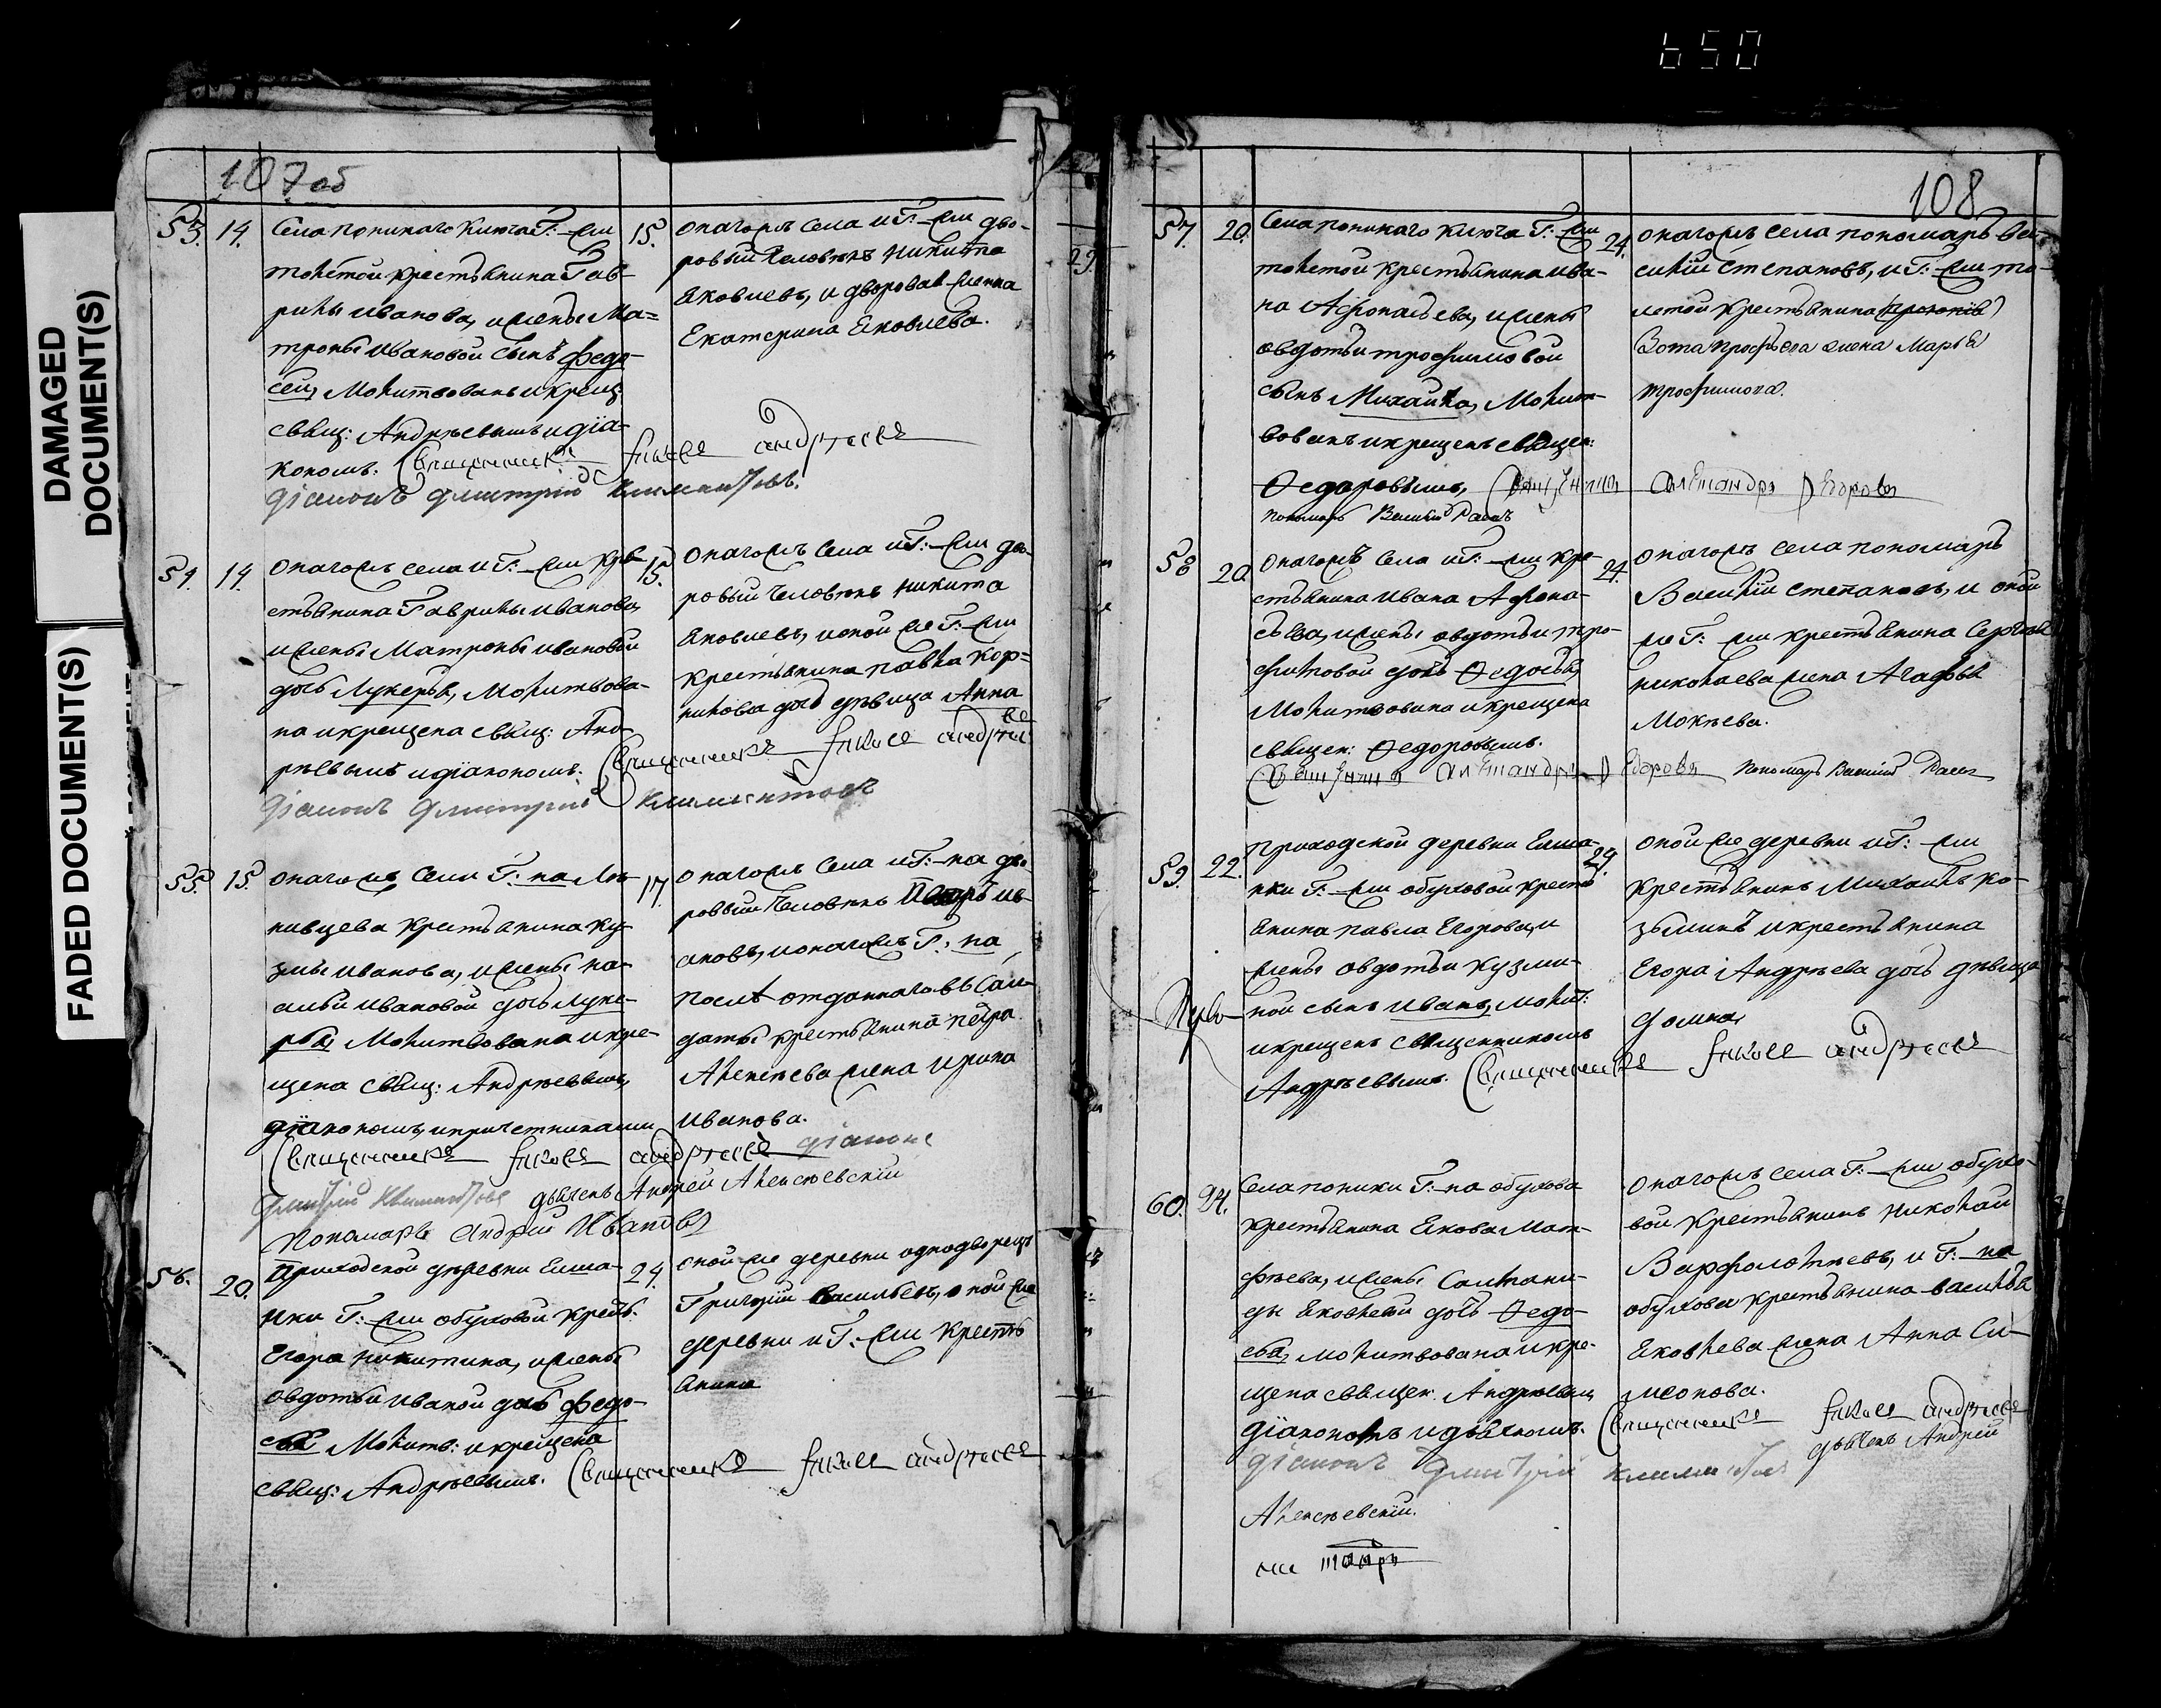 650
DAMAGED
DOCUMENT(S)
FADED DOCUMENT(S)
107 об
53. 14.
Села Поникаго Ключа Г: жи
толстой крестьянина Гав-
рилы Иванова, и жены Ма=
троны Ивановой сынъ Федо-
сей, молитвованъ и крещ:
свящ: Андреевымъ и діа-
кономъ. Священникъ Iаковъ Андреевъ
Діаконъ Дмитрій Климентовъ.
15.
онагожъ села и Г: жи дво-
ровый человекъ Никита
Яковлевъ, и дворовая женка
Екатерина Яковлева.
54. 14.
онагожъ села и Г: жи кре-
стьянина Гаврилы Иванова,
и жены Матроны Ивановой
дочь Лукерья, молитвова-
на и крещена свящ: Анд-
реевымъ и діакономъ. Священникъ Iаковъ Андреевъ
Діаконъ Дмитрій Климентовъ
15.
онагожъ села и Г: жи дво-
ровый человекъ Никита
Яковлевъ, и оной же Г: жи
крестьянина Павла Кор=
нилова дочь девица Анна
55. 15.
онагожъ села Г: на
нивцева крестьянина Ку-
змы Иванова, и жены
Ивановой дочь Луке-
рья, молитвована и кре-
щена свящ: Андреевымъ,
діакономъ, и причетниками
Священникъ Iаковъ Андреевъ Діаконъ
Дмитрій Климентовъ дьячекъ Андрей Алексеевскій
Пономарь Андрей Ивановъ
17.
онагожъ села и Г: на дво-
ровый человекъ Петръ Ив-
ановъ, и онагожъ Г: на
после отданнаго въ сол-
даты крестьянина Петра
Алексеева жена Ирина
Иванова.
56. 20.
Приходской деревни Елша-
нки Г: жи обуховой крест:
Егора Никитина, и жены
Овдотьи Иваной дочь Федо-
сья молитв: и крещена
свящ: Андреевымъ. Священникъ Iаковъ Андреевъ
24.
оной же деревни однодворецъ
Григорій Васильевъ, оной же
деревни и Г: жи кресть
янина
108
57. 20.
Села Поникаго Ключа Г: жи
толстой крестьянина Ива-
на Афонасьева, и жены
Овдотьи Трофимовой
сынъ Михайла, молит-
вованъ и крещенъ священ:
Федоровымъ, Священникъ Александръ Федоровъ
пономарь Василій
24.
онагожъ села пономарь Ва-
силій Степановъ, и Г: жи то-
лстой крестьянина
Зота Профьева жена Марья
Трофимова.
58 20.
онагожъ села и Г: жи кре-
стьянина Ивана Афона-
сьева, и жены Овдотьи Тро-
фимовой дочь Федосья,
молитвована и крещена
священ: Федоровымъ.
Священникъ Александръ Федоровъ пономарь Василій
24.
онагожъ села пономарь
Василій Степановъ, и оной
же Г: жи крестьянина Сергея
Николаева жена Агафья
Мокеева.
59. 22.
Приходской деревни Елша-
нки Г: жи обуховой кресть
янина Павла Егорова, и
жены Овдотьи Кузми-
ной сынъ Иванъ, молит:
и крещенъ священникомъ
Андреевымъ. Священникъ Iаковъ Андреевъ
24.
оной же деревни и Г: жи
крестьянинъ Михайла Ко-
зьминъ и крестьянина
Егора Андреева дочь девица
Домна,
60. 24.
Села Поники Г: на обухова
крестьянина Якова Мат-
феева, и жены Соломани-
ды Яковлевы дочь Федо-
сья, молитвована и кре-
щена священ: Андреевымъ,
діакономъ и дьячкомъ. Священникъ Iаковъ Андреевъ
Діаконъ Дмитрій Климентовъ дьячекъ Андрей
Алексеевскій.
онагожъ села Г: жи обухо-
вой крестьянинъ Николай
Варфоломеевъ, и Г: на
обухова крестьянина Василья
Яковлева жена Анна Си-
меонова.